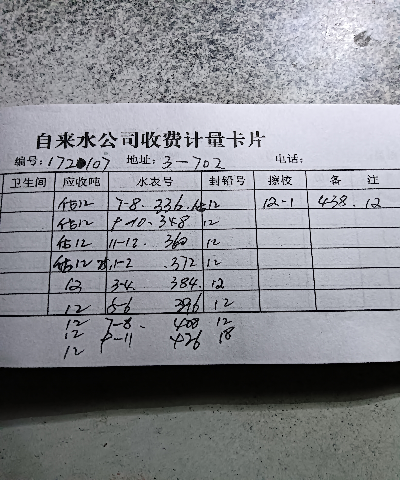 自来水公司收费计量卡片
编号:1720107 地址:3-702 电话:
卫生间 应收吨 水表号 封铅号 撩校 备 注
估12 7-8. 336. 估12 12-1 438. 12
估12 9-10. 348 12
估12 11-12. 360 12
估12 1-2 .372 12
12 3-4. 384. 12
12 5-6 396 12
12 7-8. 408 12
12 9-11 426 18
12